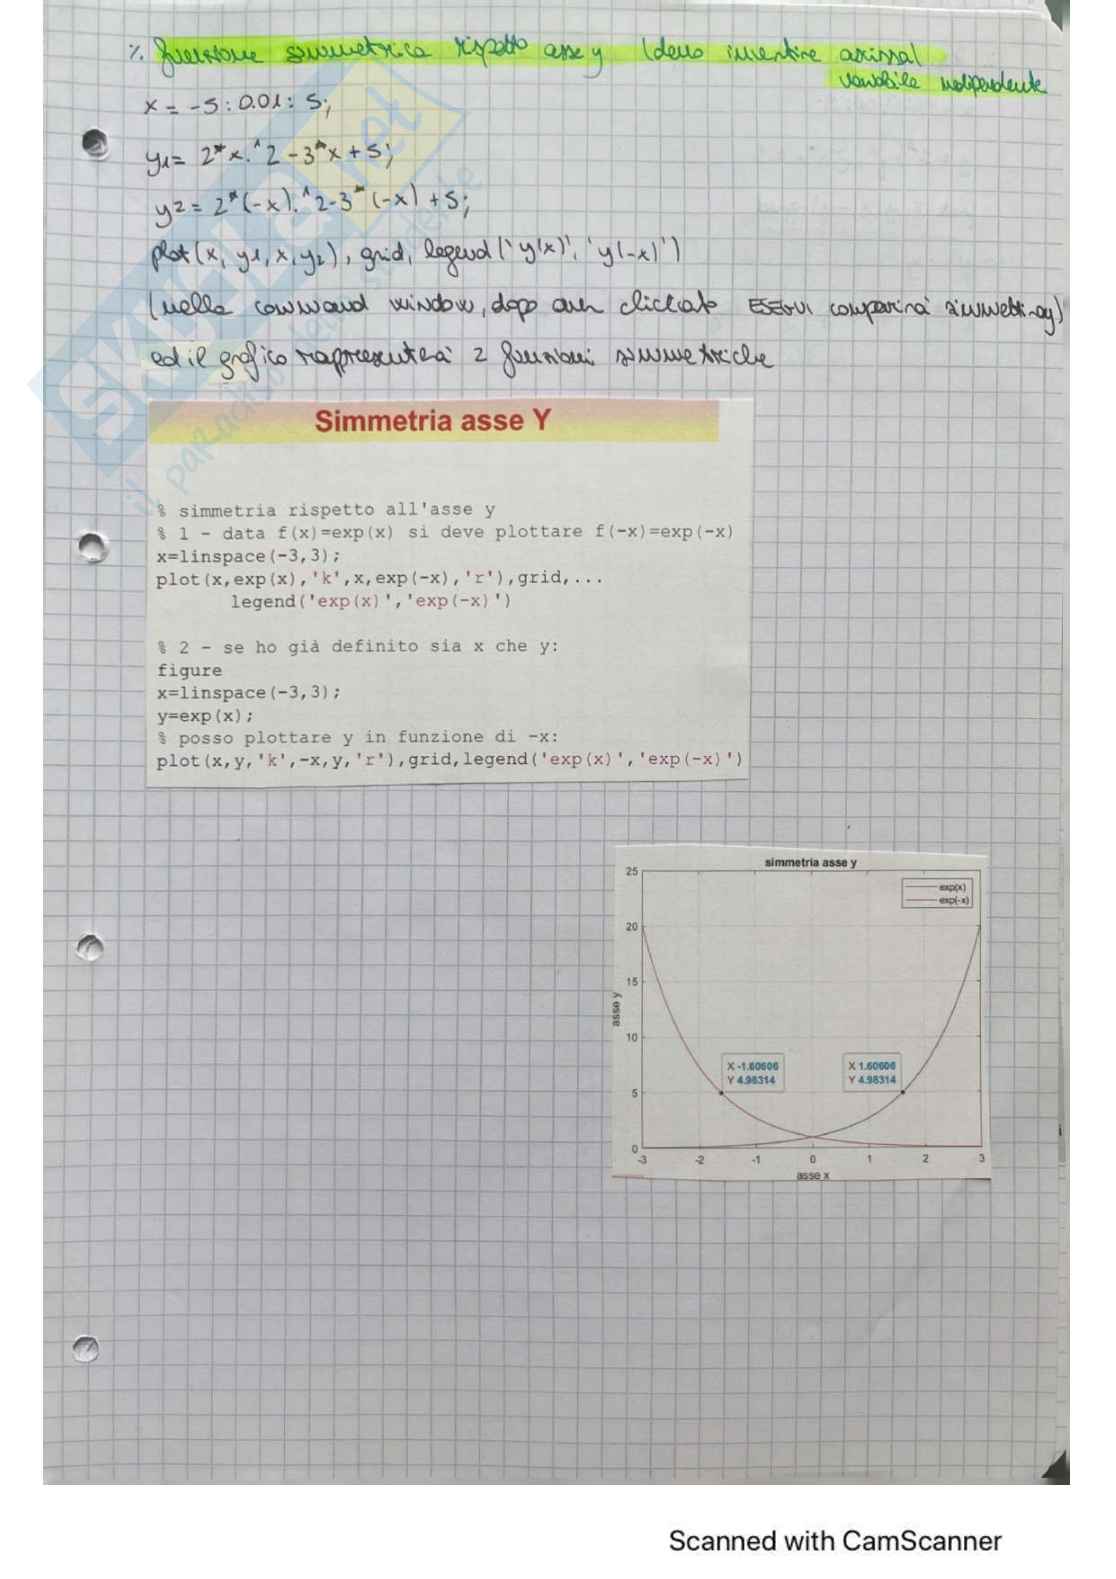 % funzione simmetrica rispetto asse y (devo invertire ascissa/
variabile indipendente
x = -5:0.01:5;
y1= 2*x.^2-3*x+5;
y2= 2*(-x).^2-3*(-x)+5;
plot(x, y1,x,y2), grid, legend('y(x)', 'y(-x)')
(nella command window, dopo aver cliccato ESEGUI comparirà simmetria y)
ed il grafico rappresenterà 2 funzioni simmetriche
Simmetria asse Y
% simmetria rispetto all'asse y
% 1 - data f(x)=exp(x) si deve plottare f(-x)=exp(-x)
x=linspace(-3,3);
plot(x,exp(x),'k',x,exp(-x),'r'),grid,...
legend('exp(x)','exp(-x)')
% 2 - se ho già definito sia x che y:
figure
x=linspace(-3,3);
y=exp(x);
% posso plottare y in funzione di -x:
plot(x,y,'k',-x,y,'r'),grid,legend('exp(x)','exp(-x)')
simmetria asse y
25
exp(x)
exp(-x)
20
15
asse y
10
X -1.60606
Y 4.98314
X 1.60606
Y 4.98314
5
0
-3 -2 -1 0 1 2 3
asse x
Scanned with CamScanner